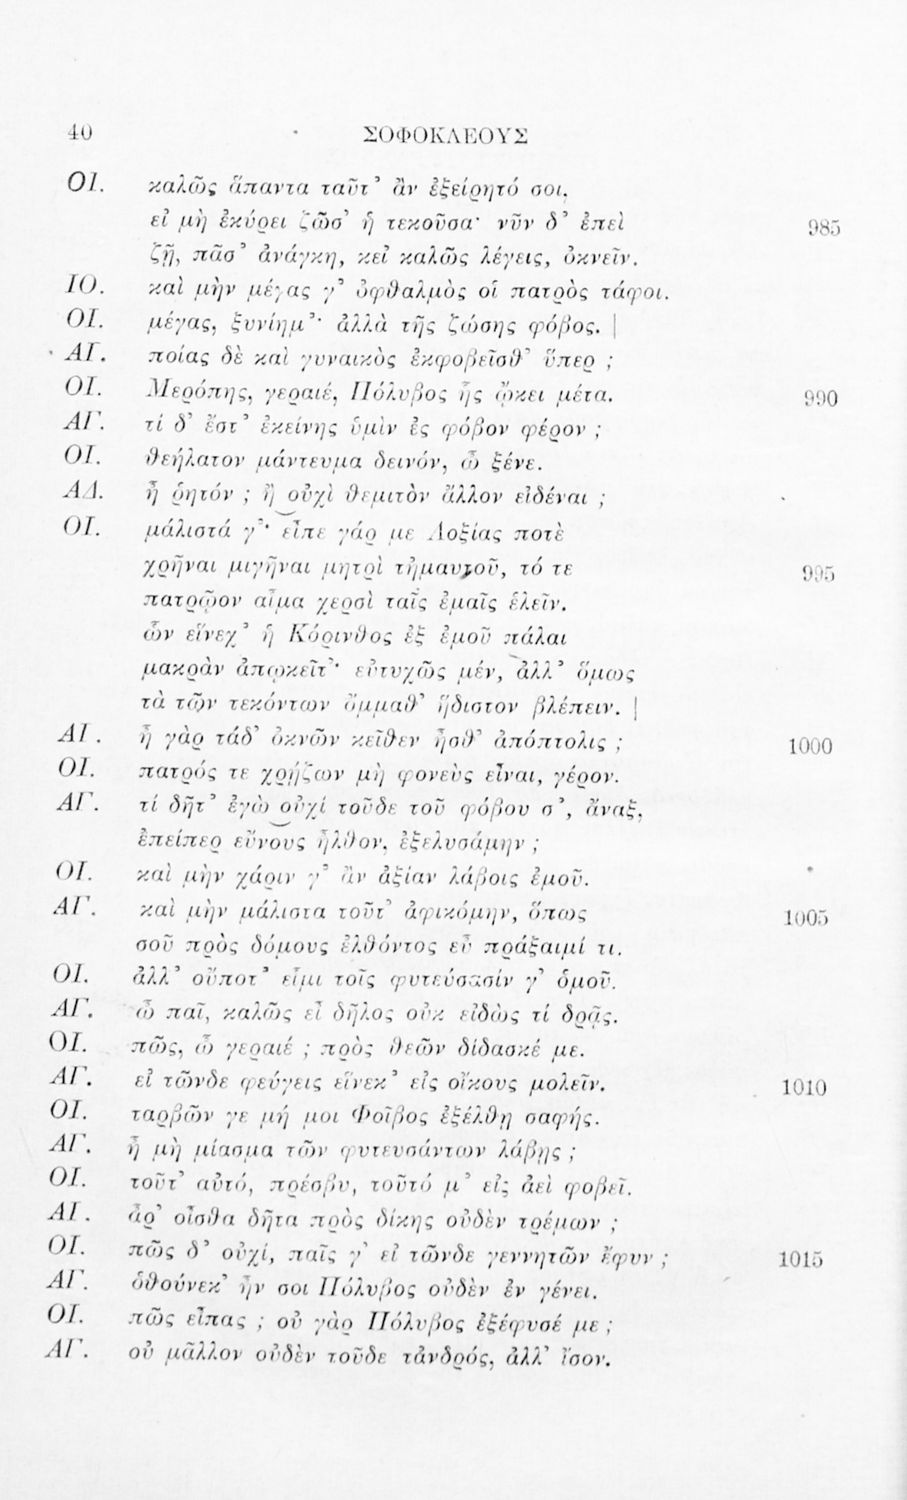 40 ΣΟΦΟΚΛΕΟΥΣ
ΟΙ. καλῶς ἅπαντα ταῦτ᾽ ἂν ἐξείρητό σοι,
εἰ μὴ ἐκύρει ζῶσ᾽ ἡ τεκοῦσα· νῦν δ᾽ ἐπεὶ 985
ζῇ, πᾶσ᾽ ἀνάγκη, κεἰ καλῶς λέγεις, ὀκνεῖν.
ΙΟ. καὶ μὴν μέγας γ᾽ ὀφθαλμὸς οἱ πατρὸς τάφοι.
ΟΙ. μέγας, ξυνίημ᾽· ἀλλὰ τῆς ζώσης φόβος. |
ΑΓ. ποίας δὲ καὶ γυναικὸς ἐκφοβεῖσθ᾽ ὕπερ ;
ΟΙ. Μερόπης, γεραιέ, Πόλυβος ἧς ᾤκει μέτα. 990
ΑΓ. τί δ᾽ ἔστ᾽ ἐκείνης ὑμὶν ἐς φόβον φέρον ;
ΟΙ. θεήλατον μάντευμα δεινόν, ὦ ξένε.
ΑΔ. ἦ ῥητόν ; ἢ οὐχὶ θεμιτὸν ἄλλον εἰδέναι ;
ΟΙ. μάλιστά γ᾽· εἶπε γάρ με Λοξίας ποτὲ
χρῆναι μιγῆναι μητρὶ τἠμαυτοῦ, τό τε 995
πατρῷον αἷμα χερσὶ ταῖς ἐμαῖς ἑλεῖν.
ὧν εἵνεχ᾽ ἡ Κόρινθος ἐξ ἐμοῦ πάλαι
μακρὰν ἀπῳκεῖτ᾽· εὐτυχῶς μέν, ἀλλ᾽ ὅμως
τὰ τῶν τεκόντων ὄμμαθ᾽ ἥδιστον βλέπειν. |
ΑΓ. ἦ γὰρ τάδ᾽ ὀκνῶν κεῖθεν ἦσθ᾽ ἀπόπτολις ; 1000
ΟΙ. πατρός τε χρῄζων μὴ φονεὺς εἶναι, γέρον.
ΑΓ. τί δῆτ᾽ ἐγὼ οὐχὶ τοῦδε τοῦ φόβου σ᾽, ἄναξ,
ἐπείπερ εὔνους ἦλθον, ἐξελυσάμην ;
ΟΙ. καὶ μὴν χάριν γ᾽ ἂν ἀξίαν λάβοις ἐμοῦ.
ΑΓ. καὶ μὴν μάλιστα τοῦτ᾽ ἀφικόμην, ὅπως 1005
σοῦ πρὸς δόμους ἐλθόντος εὖ πράξαιμί τι.
ΟΙ. ἀλλ᾽ οὔποτ᾽ εἶμι τοῖς φυτεύσασίν γ᾽ ὁμοῦ.
ΑΓ. ὦ παῖ, καλῶς εἶ δῆλος οὐκ εἰδὼς τί δρᾷς.
ΟΙ. πῶς, ὦ γεραιέ ; πρὸς θεῶν δίδασκέ με.
ΑΓ. εἰ τῶνδε φεύγεις εἵνεκ᾽ εἰς οἴκους μολεῖν. 1010
ΟΙ. ταρβῶν γε μή μοι Φοῖβος ἐξέλθῃ σαφής.
ΑΓ. ἦ μὴ μίασμα τῶν φυτευσάντων λάβῃς ;
ΟΙ. τοῦτ᾽ αὐτό, πρέσβυ, τοῦτό μ᾽ εἰς ἀεὶ φοβεῖ.
ΑΓ. ἆρ᾽ οἶσθα δῆτα πρὸς δίκης οὐδὲν τρέμων ;
ΟΙ. πῶς δ᾽ οὐχί, παῖς γ᾽ εἰ τῶνδε γεννητῶν ἔφυν ; 1015
ΑΓ. ὁθούνεκ᾽ ἦν σοι Πόλυβος οὐδὲν ἐν γένει.
ΟΙ. πῶς εἶπας ; οὐ γὰρ Πόλυβος ἐξέφυσέ με ;
ΑΓ. οὐ μᾶλλον οὐδὲν τοῦδε τἀνδρός, ἀλλ᾽ ἴσον.